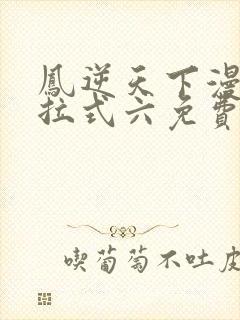 鳳逆天下漫
拉式六免費
喫葡萄不吐皮